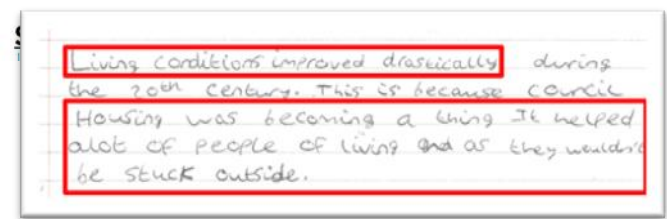 Living conditions improved drastically during
the 20th century. This is because council
Housing was becoming a thing It helped
alot of people of living and as they wouldn't
be stuck outside.